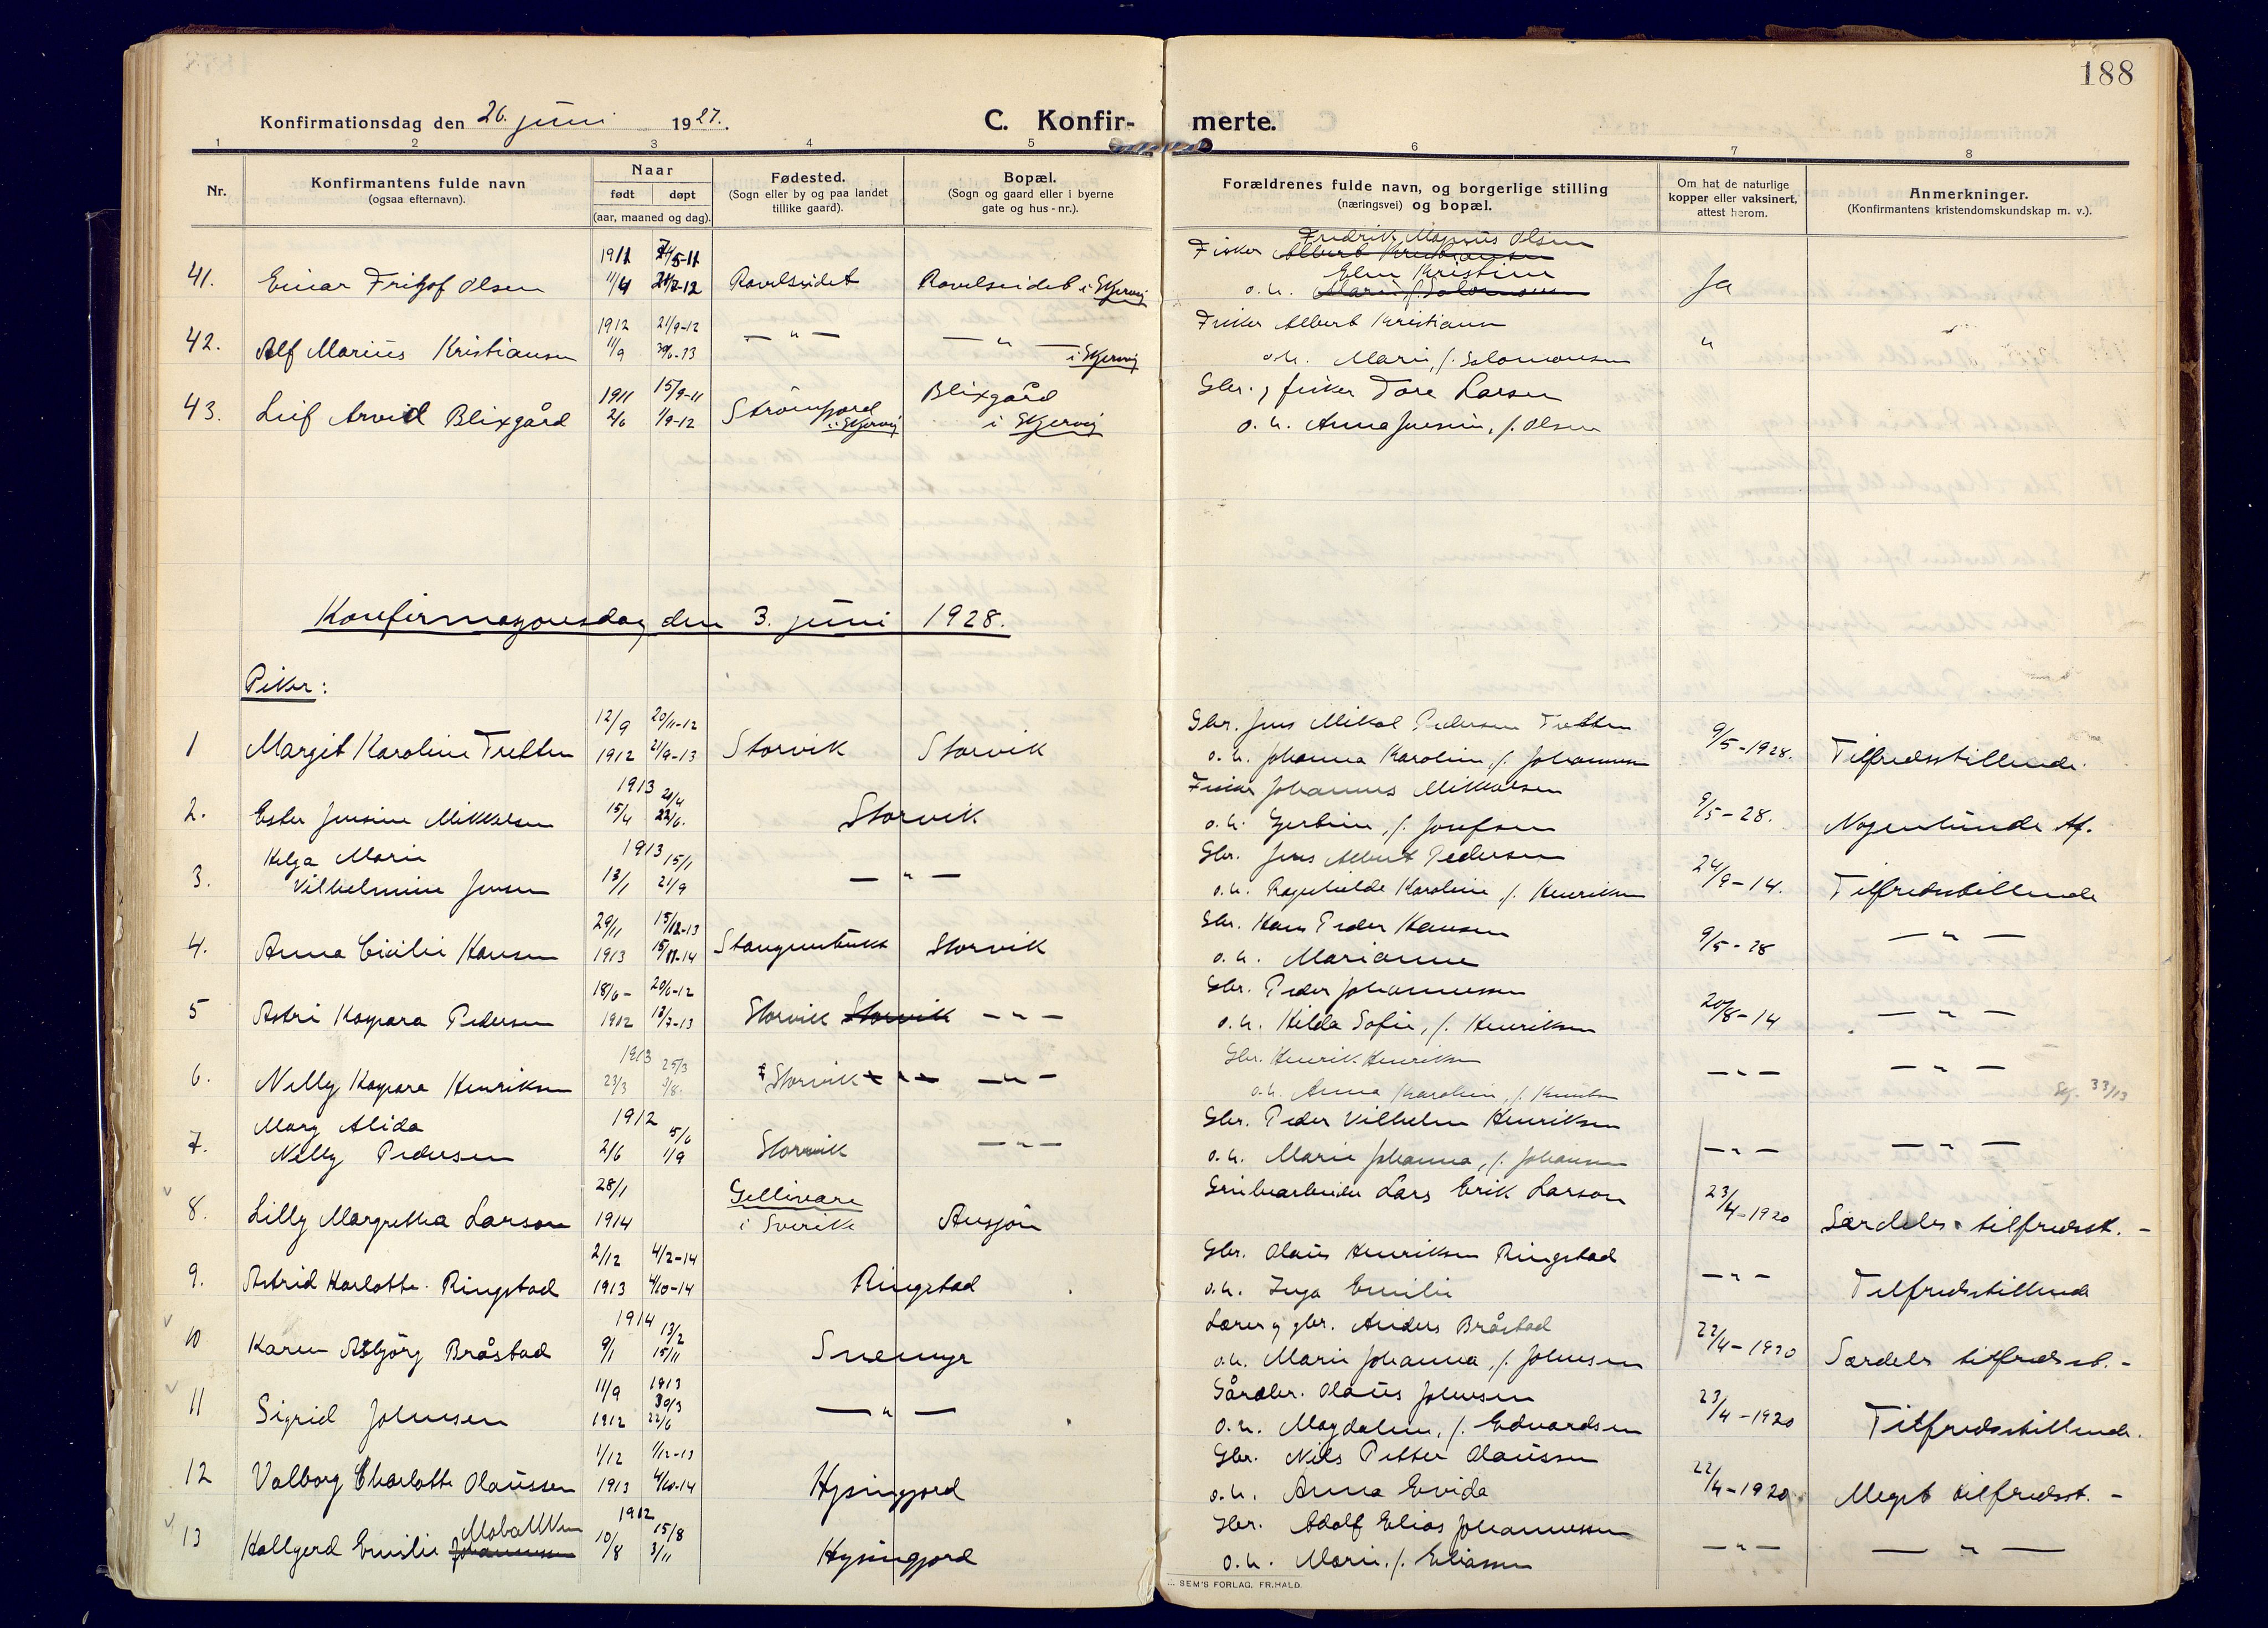 188
Konfirmationsdag den 26. juni 1927.
C. Konfirmerte.
1 2 3 4 5 6 7 8
Nr.
Konfirmantens fulde navn
(ogsaa efternavn).
Naar
født døpt
(aar, maaned og dag).
Fødested.
(Sogn eller by og paa landet
tillike gaard).
Bopæl.
(Sogn og gaard eller i byerne
gate og hus-nr.).
Forældrenes fulde navn, og borgerlige stilling
(næringsvei) og bopæl.
Om hat de naturlige
kopper eller vaksinert,
attest herom.
Anmerkninger.
(Konfirmantens kristendomskundskap m. v.).
1911 Fredrik Magnus Olsen
Fisker Albert Kristiansen
Elen Kristine
41. Einar Fritjof Olsen 11/4 Ravelseidet Ravelseidet i Skjervøy o. h. Marie, f. Solomonsen Ja
1912 21/9-12 Fisker Albert Kristiansen
42. Alf Marius Kristiansen 11/9 — " — — " — i Skjervøy o. h. Marie, f. Solomonsen "
1911 15/9-11 Blixgård Gbr. og fisker Tore Larsen
43. Leif Arvid Blixgård 2/6 1/9-12 Strømfjord i Skjervøy i Skjervøy o. h. Anna Jensine, f. Olsen
Konfirmasjonsdag den 3. juni 1928.
Piker:
12/9 20/11-12 Gbr. Jens Mikal Pedersen Tretten
1 Margit Karoline Tretten 1912 21/9-13 Storvik Storvik o. h. Johanna Karoline, f. Johannesen 9/5-1928. Tilfredsstillende.
1913 20/4 Fisker Johannes Mikkelsen
2. Ester Jensine Mikkelsen 15/4 22/6. Storvik o. h. Gertine, f. Josefsen 9/5-28. Nogenlunde tilf.
Helga Marie 1913 15/1 Gbr. Jens Albert Pedersen
3. Vilhelmine Jensen 13/1 21/9 — " — o. h. Ragnhilde Karoline, f. Henriksen 24/9-14. Tilfredsstillende
29/11 15/12-13 Gbr. Hans Peder Hansen
4. Anna Cicilie Hansen 1913 15/11-14 Stangenbukt Storvik o. h. Marianne 9/5-28 — " —
18/6- 20/6-12 Gbr. Peder Johannessen
5 Astri Kaspara Pedersen 1912 13/7-13 Storvik Storvik — " — o. h. Hilda Sofie, f. Henriksen 20/8-14 — " —
1913 25/3 Gbr. Henrik Henriksen
6. Nelly Kaspara Henriksen 23/3 3/8. Storvik — " — o. h. Anna Karoline, f. Knutsen — " — — " — 33/13
Mary Alida 1912 5/6 Gbr. Peder Vilhelm Henriksen
7. Nelly Pedersen 2/6 1/9 Storvik — " — o. h. Marie Johanna, f. Johansen — " — — " —
28/1 Gellivare Grubearbeider Lars Erik Larson
8. Lilly Margretha Larson 1914 i Sverike Ansjön 23/4-1920 Særdeles tilfredsst. -
2/12 4/2-14 Gbr. Olaus Henriksen Ringstad
9. Astrid Karlotte Ringstad 1913 4/10-14 Ringstad o. h. Inga Emilie — " — Tilfredsstillende
1914 13/2 Lærer og gbr. Anders Bråstad
10 Karen Asbjörg Bråstad 9/1 15/11 Snemyr o. h. Marie Johanna, f. Johnsen 22/4-1920 Særdeles tilfredsst. -
11/9 1913 30/3 Gårdbr. Olaus Johnsen
11 Sigrid Johnsen 1912 22/6 — " — o. h. Magdalene, f. Edvardsen 23/4-1920 Tilfredsstillende.
1/12 1/12-13 Gbr. Nils Petter Olaussen
12 Valborg Charlotte Olaussen 1913 4/10-14 Hysingjord o. h. Anna Evida 22/4-1920 Meget tilfredsst. -
Mobakken 1912 15/8 Gbr. Adolf Elias Johannessen
13 Hallgerd Emilie Johannessen 10/8 3/11 Hysingjord o. h. Marie, f. Eliassen — " — — " —
SEM'S FORLAG. FR. HALD.